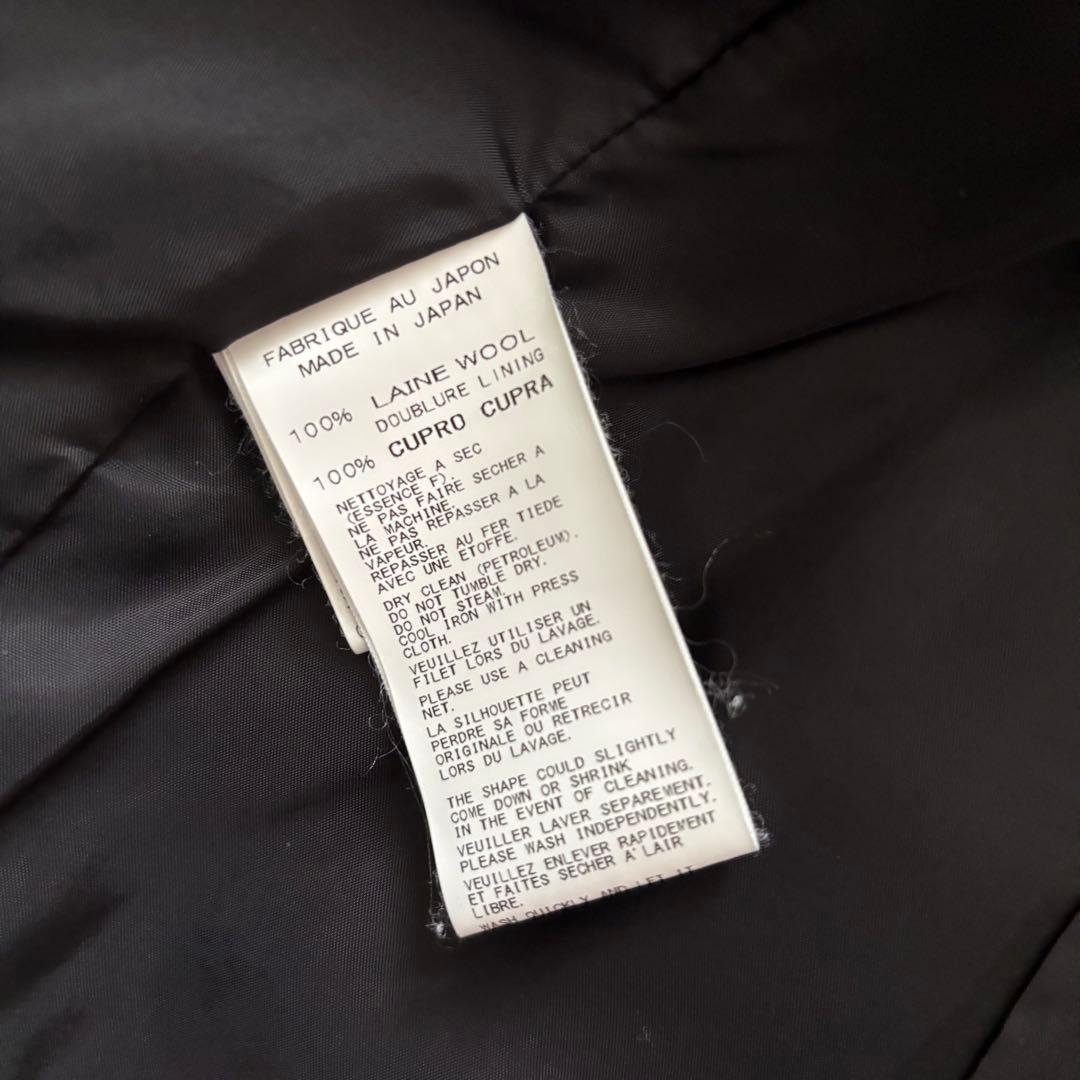 FABRIQUE AU JAPON
MADE IN JAPAN
100% LAINE WOOL
DOUBLURE LINING
100% CUPRO CUPRA
NETTOYAGE A SEC
(ESSENCE F).
NE PAS FAIRE SECHER A
LA MACHINE.
NE PAS REPASSER A LA
VAPEUR.
REPASSER AU FER TIEDE
AVEC UNE ETOFFE.
DRY CLEAN (PETROLEUM).
DO NOT TUMBLE DRY.
DO NOT STEAM.
COOL IRON WITH PRESS
CLOTH.
VEUILLEZ UTILISER UN
FILET LORS DU LAVAGE.
PLEASE USE A CLEANING
NET.
LA SILHOUETTE PEUT
PERDRE SA FORME
ORIGINALE OU RETRECIR
LORS DU LAVAGE.
THE SHAPE COULD SLIGHTLY
COME DOWN OR SHRINK
IN THE EVENT OF CLEANING.
VEUILLER LAVER SEPAREMENT.
PLEASE WASH INDEPENDENTLY.
VEUILLEZ ENLEVER RAPIDEMENT
ET FAITES SECHER A' LAIR
LIBRE.
WASH QUICKLY AND LET IT